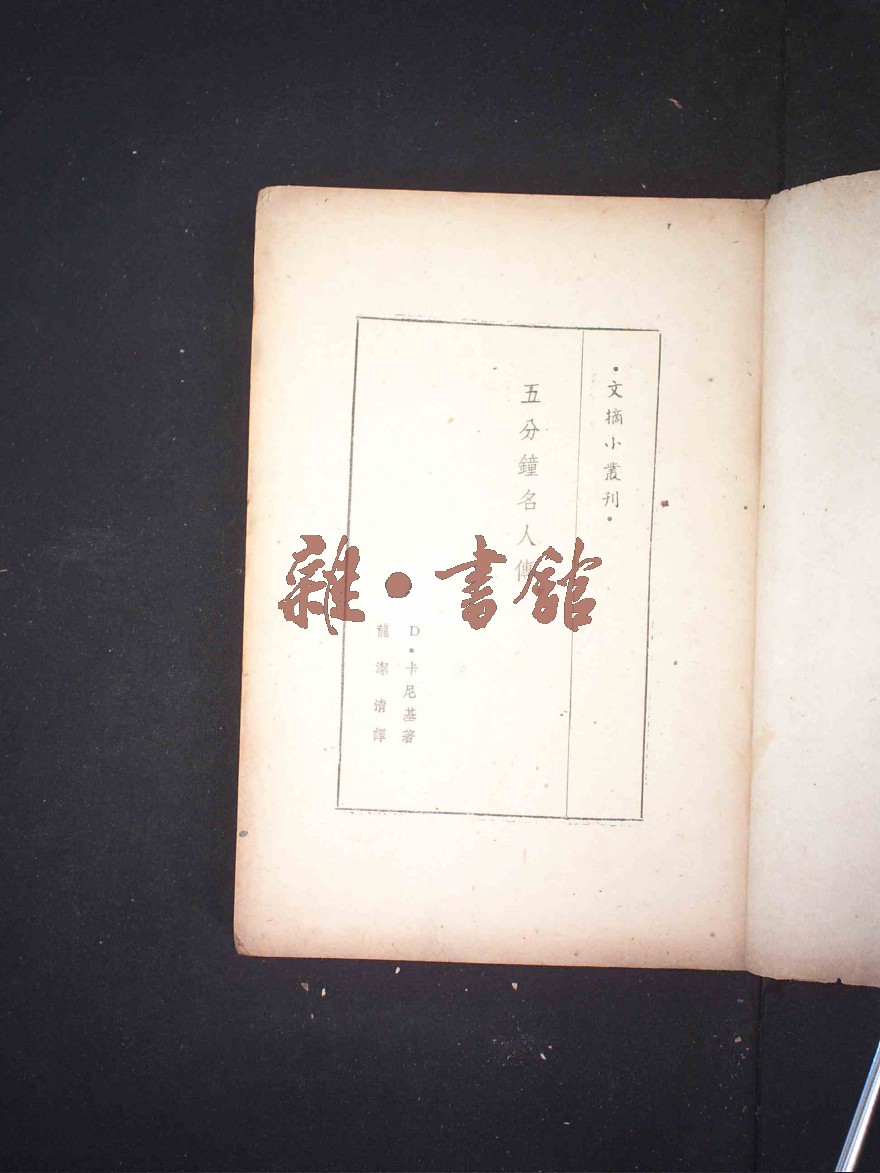 •文摘小叢刊•
五分鐘名人傳
D•卡尼基著
龍潔清譯
雜•書館